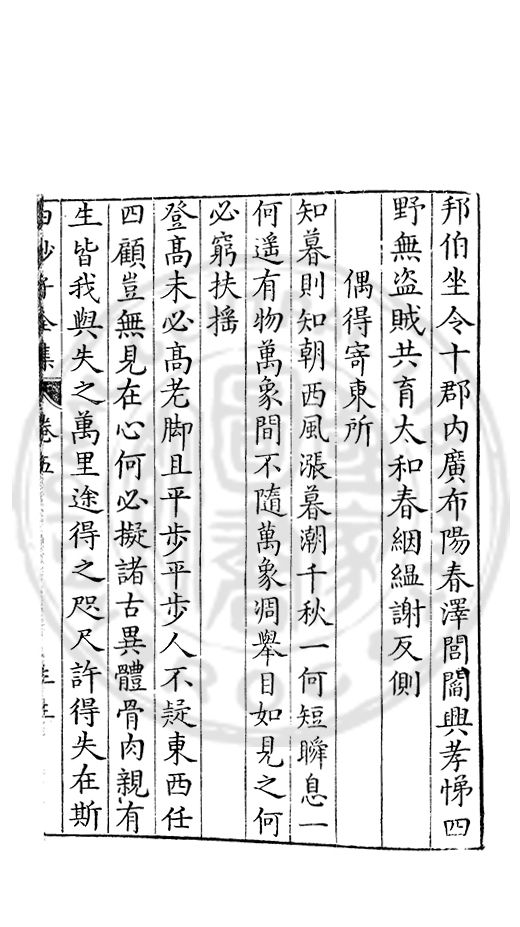 邦伯坐令十郡內廣布陽春澤閭閻興孝悌四
野無盜賊共育太和春絪縕謝反側
偶得寄東所
知暮則知朝西風漲暮潮千秋一何短瞬息一
何遥有物萬象間不隨萬象凋舉目如見之何
必窮扶摇
登高未必高老脚且平步平步人不疑東西任
四顧豈無見在心何必擬諸古異體骨肉親有
生皆我與失之萬里途得之咫尺許得失在斯
白沙子全集 卷五